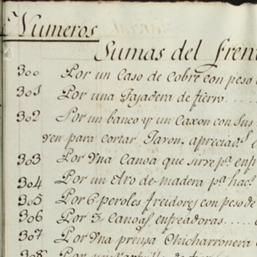 Numeros
Sumas del frent
300 Por un Caso de Cobre con peso d
301 Por una Tajadera de fierro....
302 Por un banco y un Caxon con sus
ven para cortar Jaron, apreciad.s
303 Por Vna Canoa que sirve p.a enf
304 Por un de madera p.a hac.
305 Por 6 peroles freidores con peso de
306 Por 3 Canoas enfreadoras.....
307 Por Vna prensa Chicharronera
308 Por un